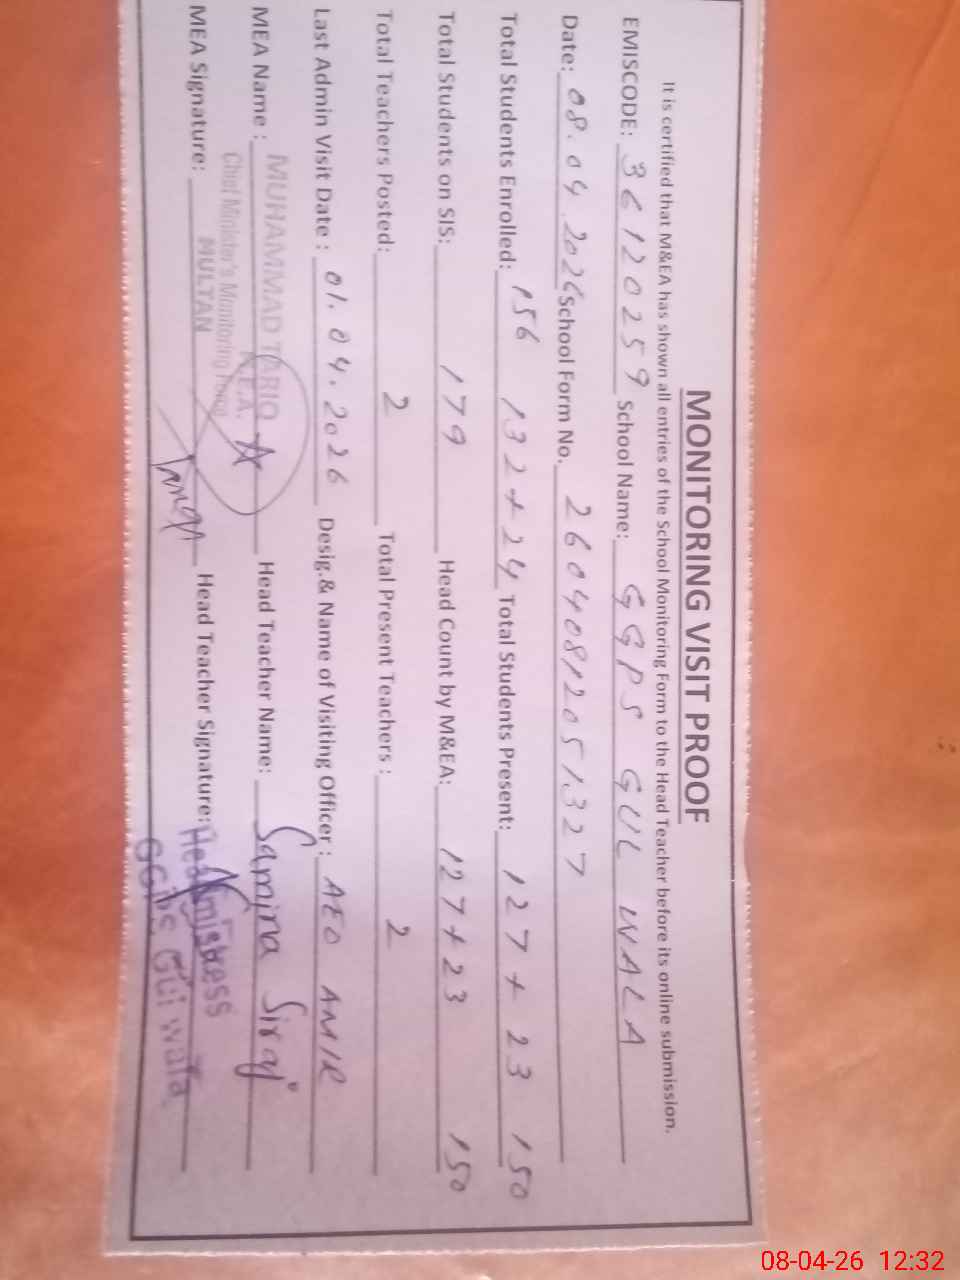 MONITORING VISIT PROOF
It is certified that M&EA has shown all entries of the School Monitoring Form to the Head Teacher before its online submission.
EMISCODE: 36120259 School Name: GGPS GUL WALA
Date: 08.04.2026 School Form No. 26040812051327
Total Students Enrolled: 156 132+24 Total Students Present: 127+23 150
Total Students on SIS: 179 Head Count by M&EA: 127+23 150
Total Teachers Posted: 2 Total Present Teachers: 2
Last Admin Visit Date: 01.04.2026 Desig.& Name of Visiting Officer: AEO AMIR
MEA Name: MUHAMMAD TARIQ Head Teacher Name: Samina Siraj
M.E.A.
Chief Minister's Monitoring Force
MULTAN
MEA Signature: Head Teacher Signature: Headmistress
GGPS Gul Wala
08-04-26 12:32